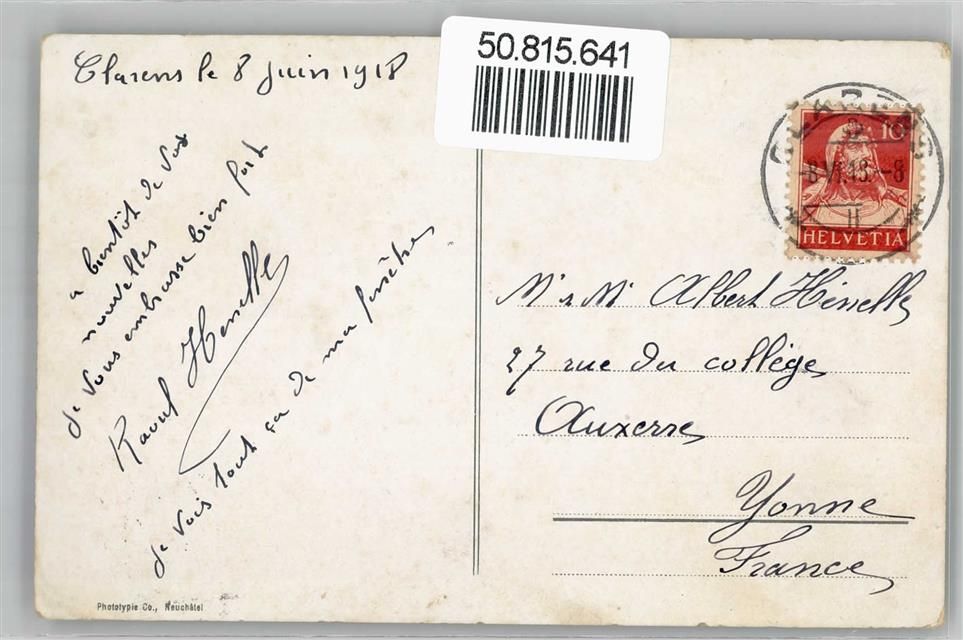 50.815.641
Clarens le 8 juin 1918
a bientôt de vos
nouvelles
Je vous embrasse bien fort
Raoul Hesselle
Je vois tout ça de ma fenêtre
10
HELVETIA
-8 VI.18.-8
Albert Hesselle
27 rue du collège
Auxerre
Yonne
France
Phototypie Co., Neuchâtel